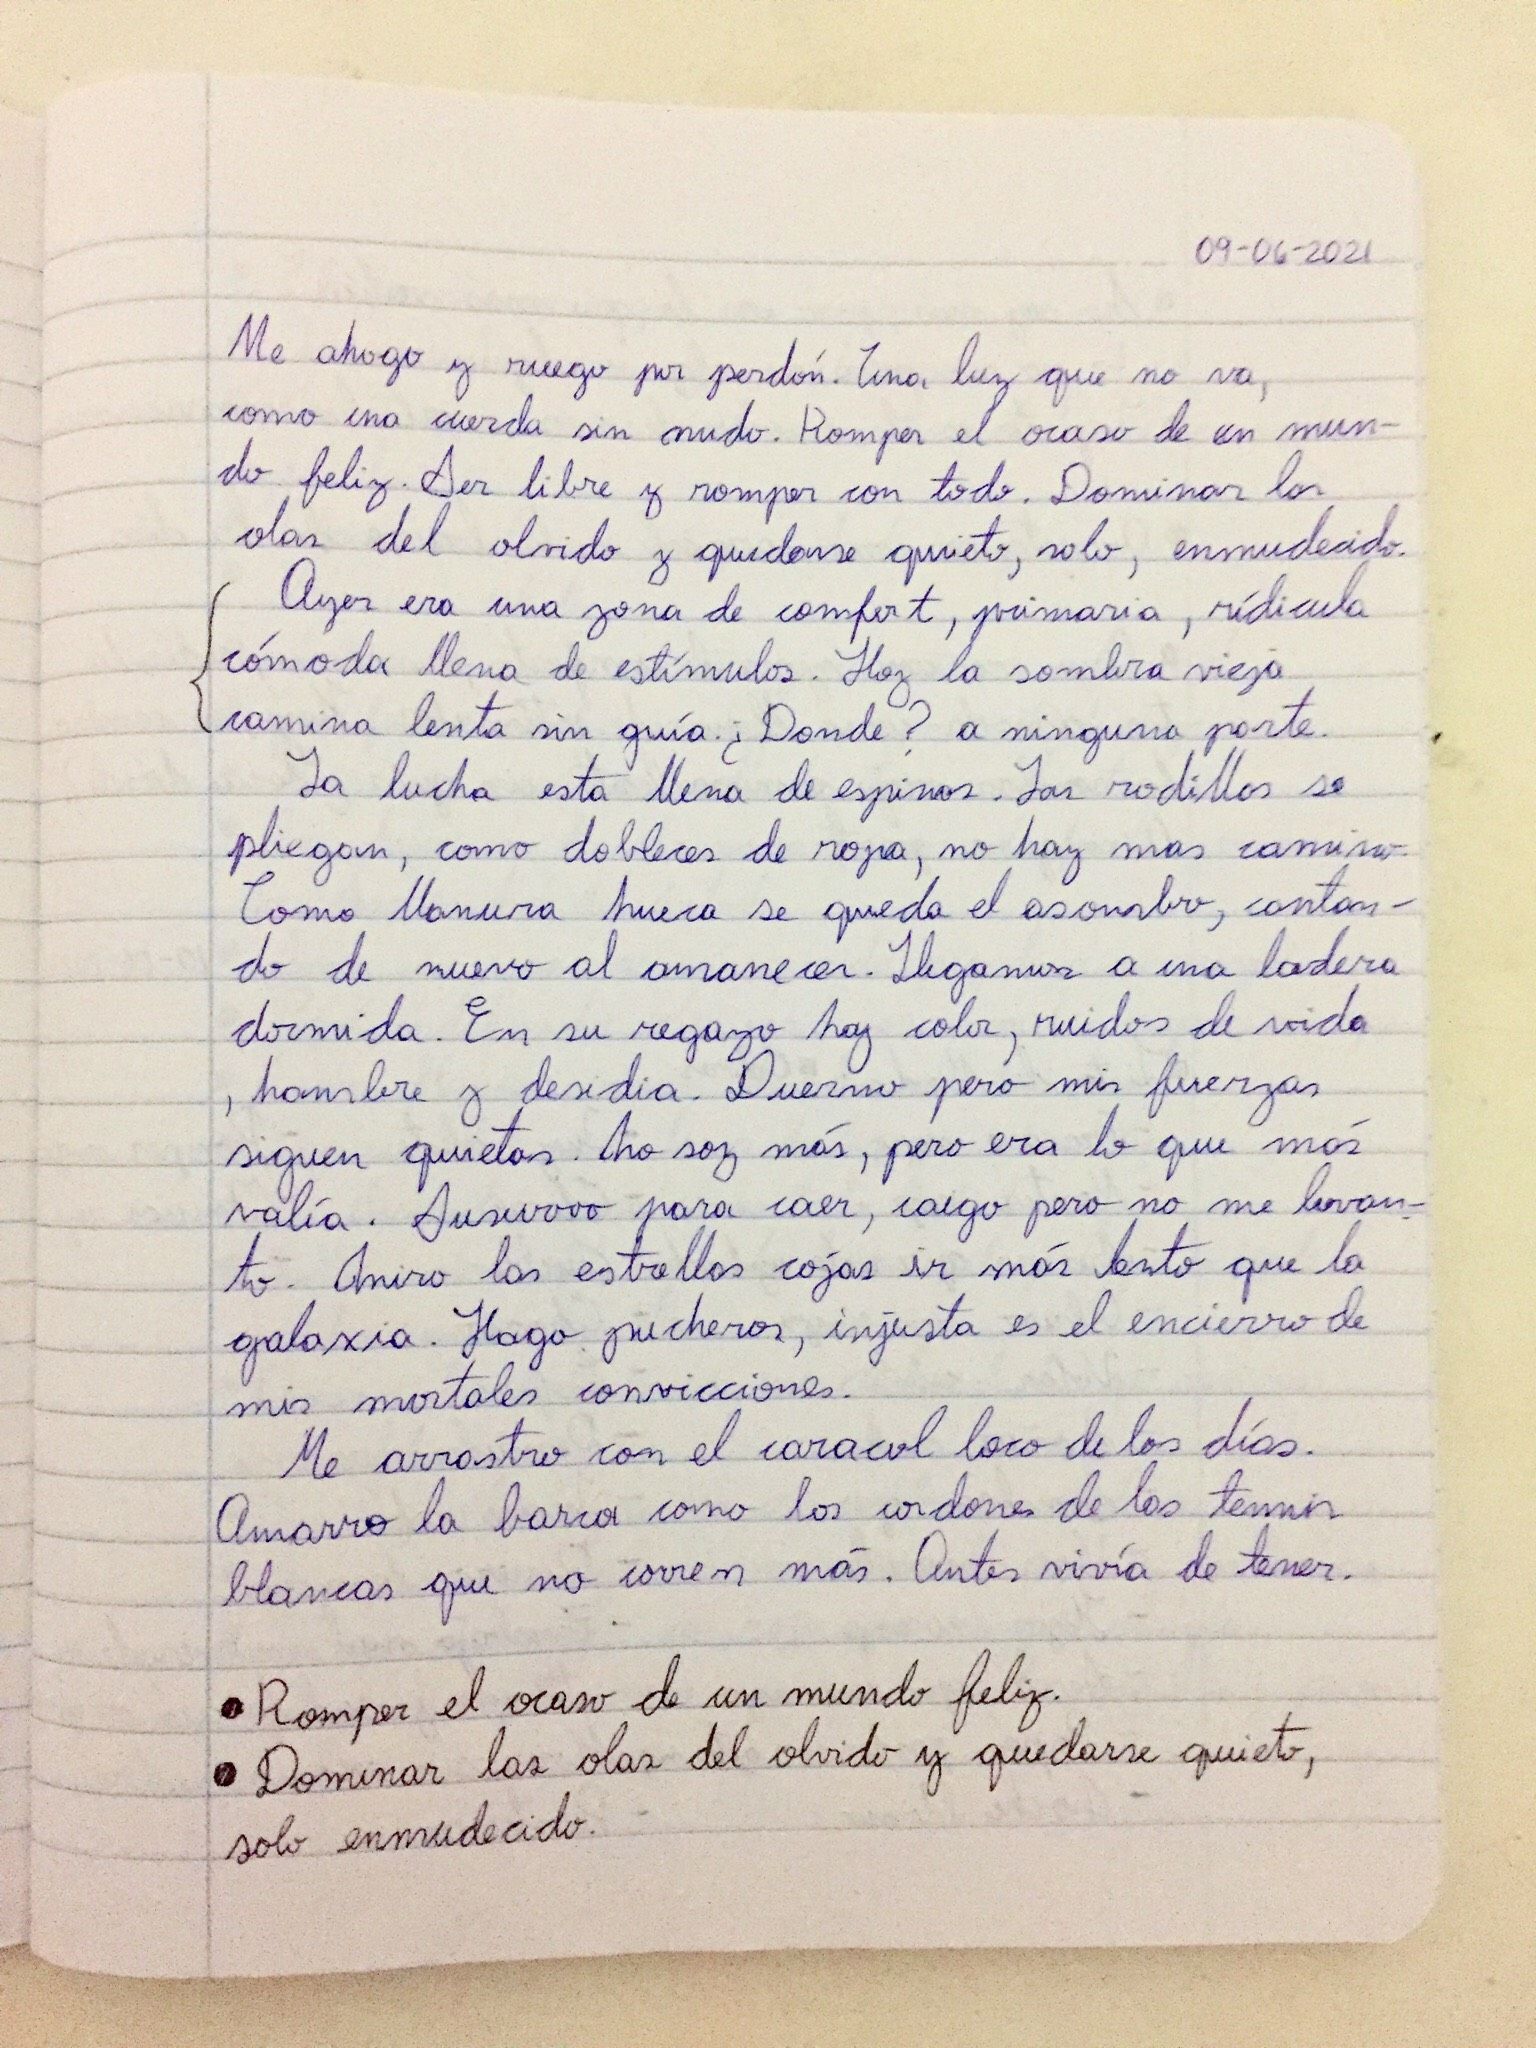 09-06-2021
Me ahogo y ruego por perdón. Una luz que no va,
como una cuerda sin nudo. Romper el ocaso de un mun-
do feliz. Ser libre y romper con todo. Dominar las
olas del olvido y quedarse quieto, solo, enmudecido.
Ayer era una zona de comfort, primaria, rídicula
cómoda llena de estímulos. Hoy la sombra vieja
camina lenta sin guía. ¿Donde? a ninguna parte.
La lucha esta llena de espinos. Las rodillas se
pliegan, como dobleces de ropa, no hay mas camino
Como llanura hueca se queda el asombro, cantan-
do de nuevo al amanecer. Llegamos a una ladera
dormida. En su regazo hay color, ruidos de vida
, hambre y desidia. Duermo pero mis fuerzas
siguen quietas. No soy más, pero era lo que más
valía. para caer, caigo pero no me levan-
to. Miro las estrellas cojas ir más lento que la
galaxia. Hago pucheros, injusta es el encierro de
mis mortales convicciones.
Me arrastro con el caracol loco de los días.
Amarro la barca como los cordones de las tennis
blancas que no corren más. Antes vivía de tener.
• Romper el ocaso de un mundo feliz.
• Dominar las olas del olvido y quedarse quieto,
solo enmudecido.